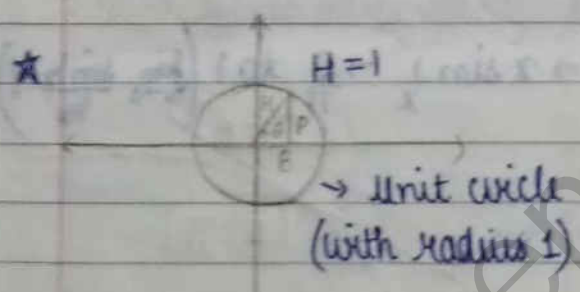 ★ H = 1
H θ P
B
→ unit circle
(with radius 1)